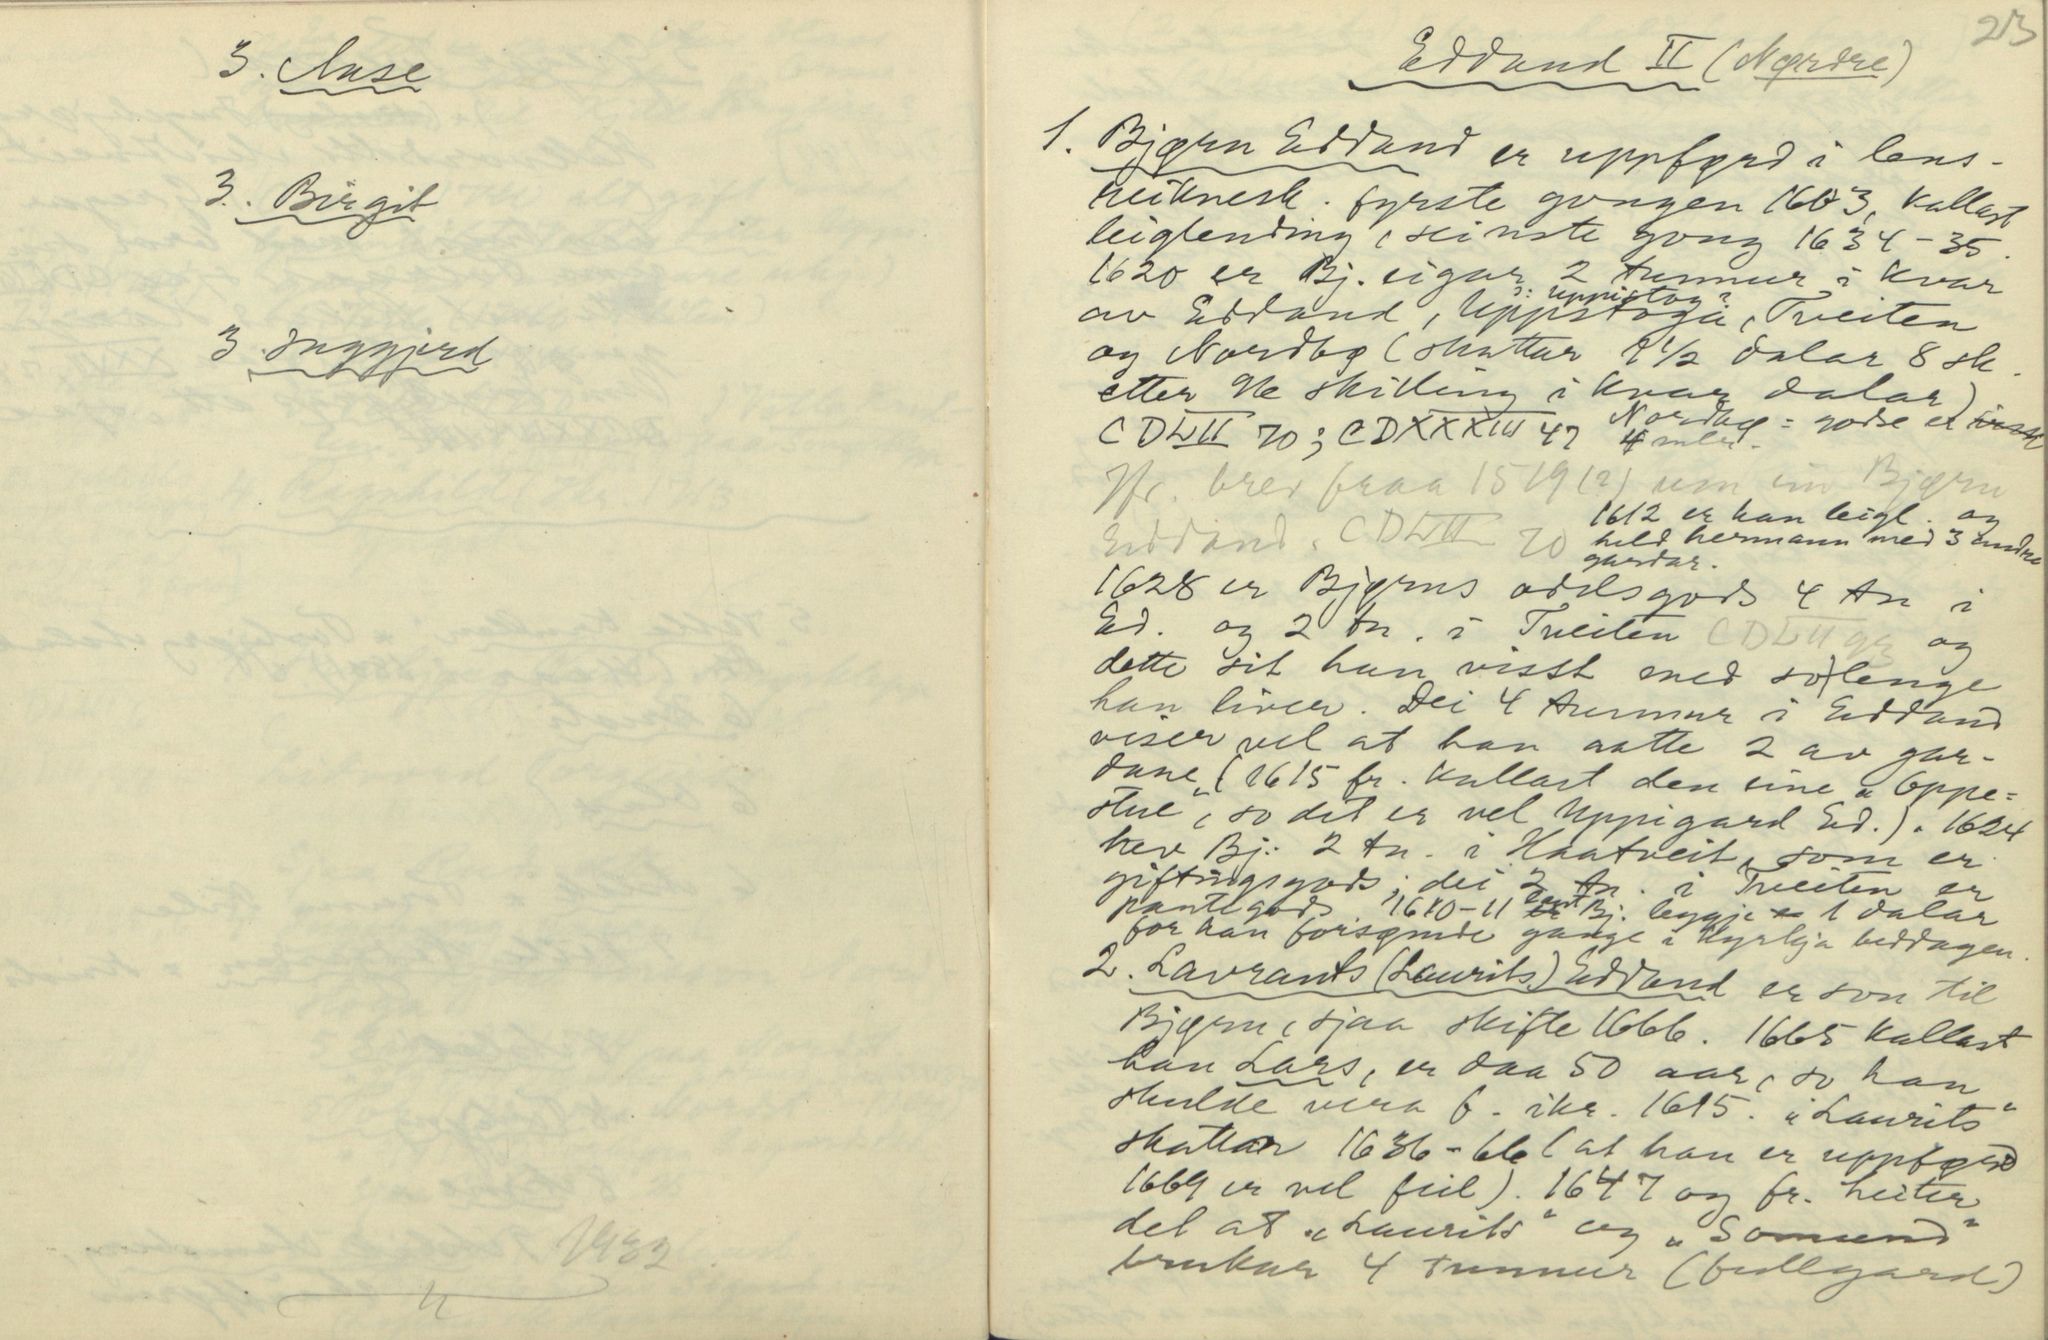 3. Aase
3. Birgit
3. Inggjerd
1932
23
Eddand II (Nørdre)
1. Bjørn Eddand er uppførd i lens-
reiknesk. fyrste gongen 1603, kallast
leiglending, seinste gong 1634-35.
1620 er Bj. eigar 2 tunnur i kvar
ɔ: uppistog?
av Eddand, Uppstoga, Tveiten
og Nordbø (skattar 9½ dalar 8 sk.
etter skilling i kvar dalar)
CDLII 70; CDXXXIII 47 Nordbø-godse er
4 mler.
Jfr. brev fraa 1519(?) um ein Bjørn
Eddand, CDLII 70
1612 er han leigl. og
held hermann med 3 andre
gardar.
1628 er Bjørns odelsgods 4 tn i
Ed. og 2 tn. i Tveiten CDLII 93 og
dette sit han visst med so lenge
han liver. Dei 4 tunnur i Eddand
viser vel at han aatte 2 av gar-
dane, (1615 fr. kallast den eine "Oppe-
stue", so det er vel Uppigard Ed.). 1624
hev Bj. 2 tn. i Haatveit, som er
giftingsgods; dei 2 tn. i Tveiten er
pantegods. 1610-11 Bj. leggje 1 dalar
for han forsømde gange i kyrkja beddagen.
2. Lavrants (Laurits) Eddand er son til
Bjørn, sjaa skifte 1666. 1665 kallast
han Lars, er daa 50 aar, so han
skulde vera f. ikr. 1615. "Laurits"
skattar 1636-66 (at han er uppførd
1669 er vel feil). 1647 og fr. heiter
det at "Laurits" og "Somund"
brukar 4 tunnur (fullgard)